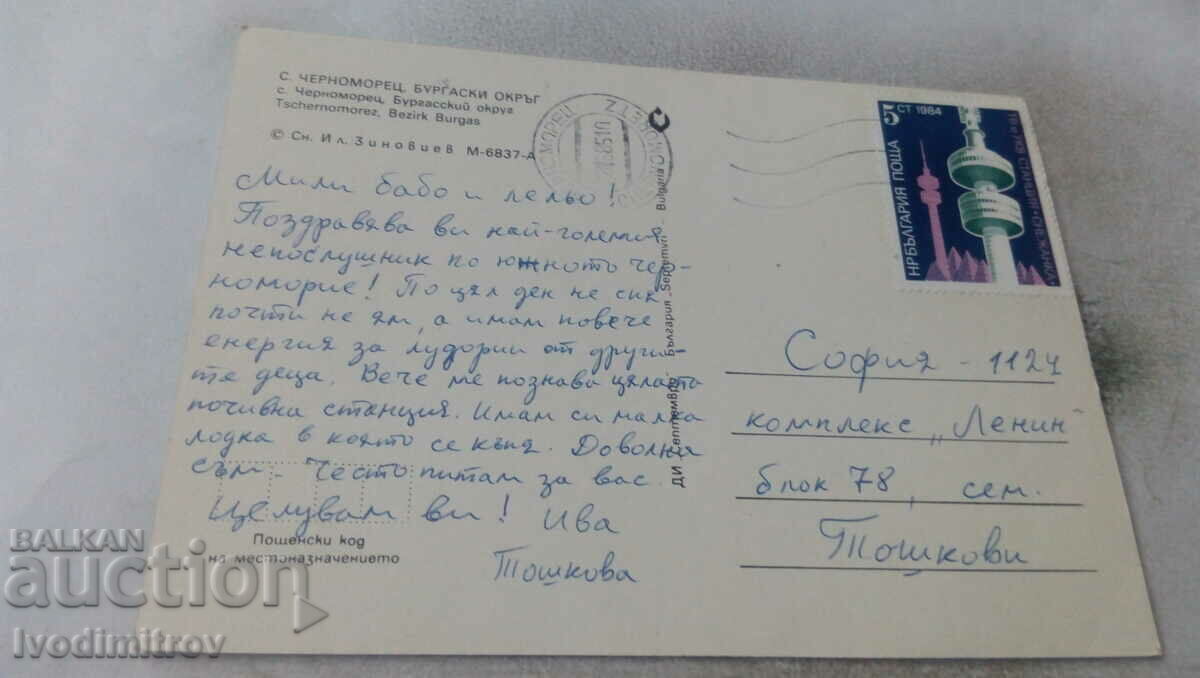 С. ЧЕРНОМОРЕЦ, БУРГАСКИ ОКРЪГ
с. Черноморец, Бургасский округ
Tschernomorez, Bezirk Burgas
© Сн. Ил. Зиновиев М-6837-А
Мили бабо и лельо!
Поздравява ви най-големия
непослушник по южното Чер-
номорие! По цял ден не спя
почти не ям, а имам повече
енергия за лудории от други-
те деца. Вече ме познава цялата
почивна станция. Имам си малка
лодка в която се къпя. Доволна
съм. Често питам за вас.
Целувам ви! Ива
Тошкова
Пощенски код
на местоназначението
ДИ „Септември“ България „Septemvri“ - Bulgaria
5 СТ 1984
НР БЪЛГАРИЯ ПОЩА
София - 1124
комплекс „Ленин“
блок 78, сем.
Тошкови
BALKAN
auction
Ivodimitrov